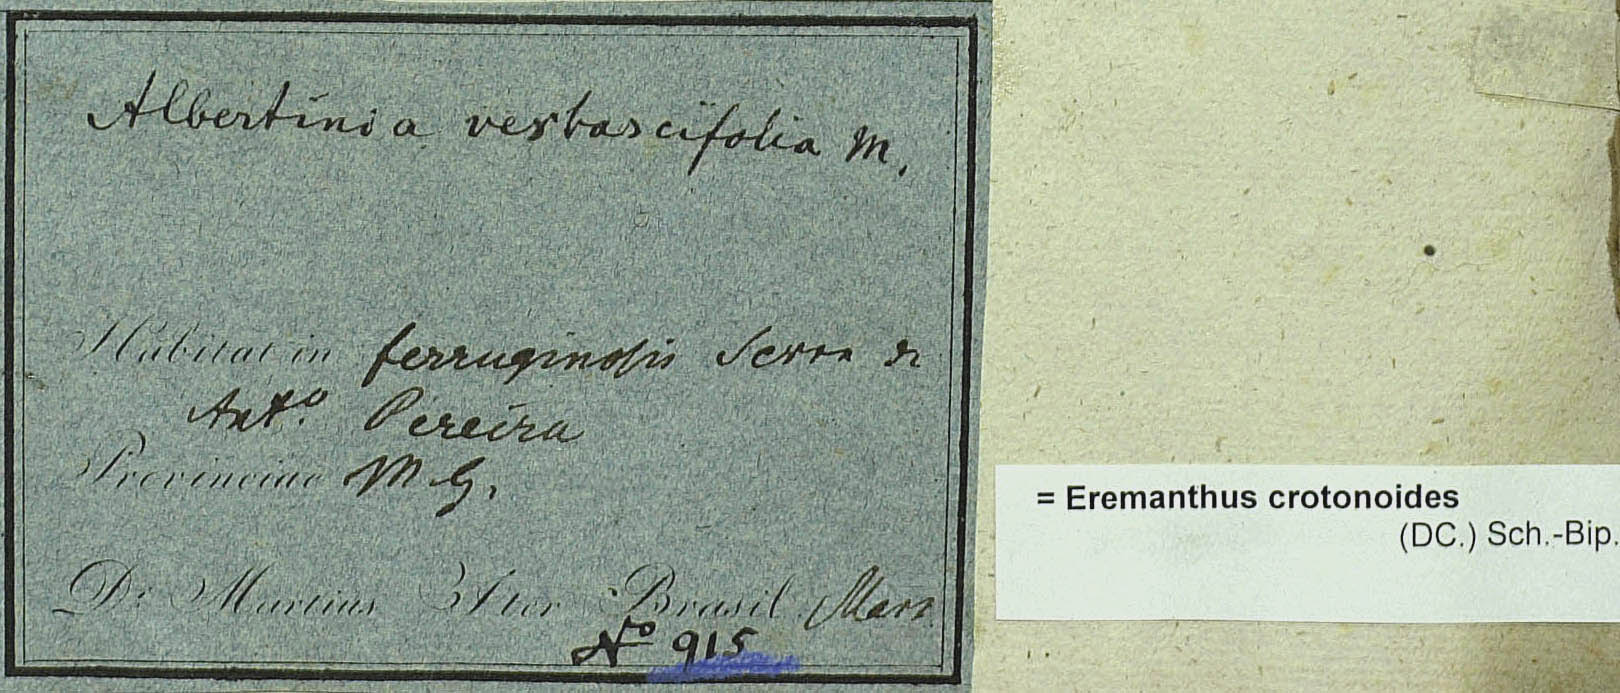 Albertinia verbascifolia M.
Habitat in ferruginosis Serra de
Anto. Pereira
Provinciae M. G.
Dr. Martius Iter Brasil.
No 915
= Eremanthus crotonoides
(DC.) Sch.-Bip.